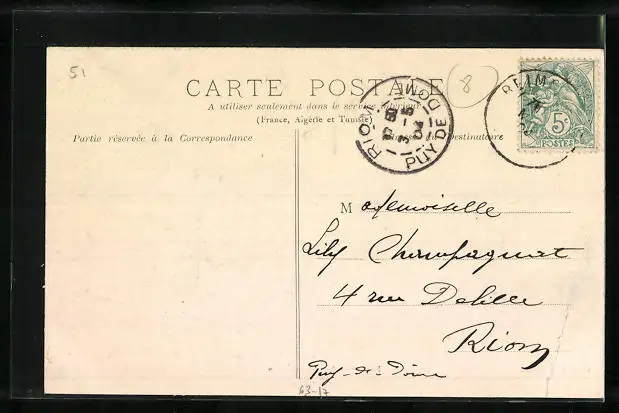 51
CARTE POSTALE
8
A utiliser seulement dans le service intérieur
(France, Algérie et Tunisie)
Partie réservée à la Correspondance
Destinataire
RIOM
PUY-DE-DOME
REIMS
5c
POSTES
Mademoiselle
Lily Champagnat
4 rue Delille
Riom
Puy-de-Dôme
63-17